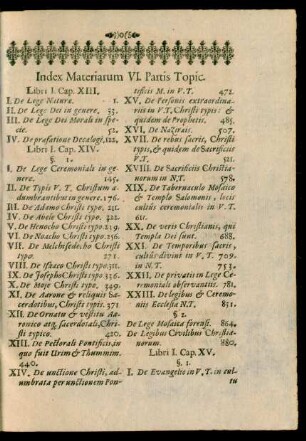 Index Materiarum VI. Partis Topic.
Libri I. Cap. XIII.
I. De Lege Naturæ. 1.
II. De Lege Dei in genere. 33.
III. De Lege Dei Morali in specie. 52.
IV. De præfatione Decalogi. 122.
Libri I. Cap. XIV.
§. 1.
I. De Lege Ceremoniali in genere. 145.
II. De Typis V. T. Christum adumbrantibus in genere. 176.
III. De Adamo Christi typo. 231.
IV. De Abele Christi typo.
V. De Henocho Christi typo.
VI. De Noacho Christi typo. 256.
VII. De Melchisedecho Christi typo. 271.
VIII. De Isaaco Christi typo. 311.
IX. De Josepho Christi typo. 336.
X. De Mose Christi typo. 349.
XI. De Aarone & reliquis Sacerdotibus, Christi typis. 371
XII. De Ornatu & vestitu Aaronico atq; sacerdotali, Christi typico. 420.
XIII. De Pectorali Pontificis, in quo fuit Urim & Thummim.
440.
XIV. De unctione Christi, adumbrata per unctionem Pontificis M. in V. T. 472.
XV. De Personis extraordinariis in V. T. Christi typis: & quidem de Prophetis. 485.
XVI. De Naziræis. 507.
XVII. De rebus sacris, Christi typis, & quidem de Sacrificiis V. T. 521.
XVIII. De Sacrificiis Christianorum in N. T. 578.
XIX. De Tabernaculo Mosaico & Templo Salomonis, locis cultus ceremonialis in V. T.
611.
XX. De veris Christianis, qui Templa Dei sunt. 688.
XXI. De Temporibus sacris, cultûs divini in V. T. 709.
in N. T. 753.
XXII. De privatis in Lege Ceremoniali observantiis. 781.
XXIII. De legibus & Ceremoniis Ecclesiæ N. T. 831.
§. 2.
De Lege Mosaica forensi. 864.
De Legibus Civilibus Christianorum. 880.
Libri I. Cap. XV.
§. 1.
I. De Evangelio in V. T. in cul-
tu